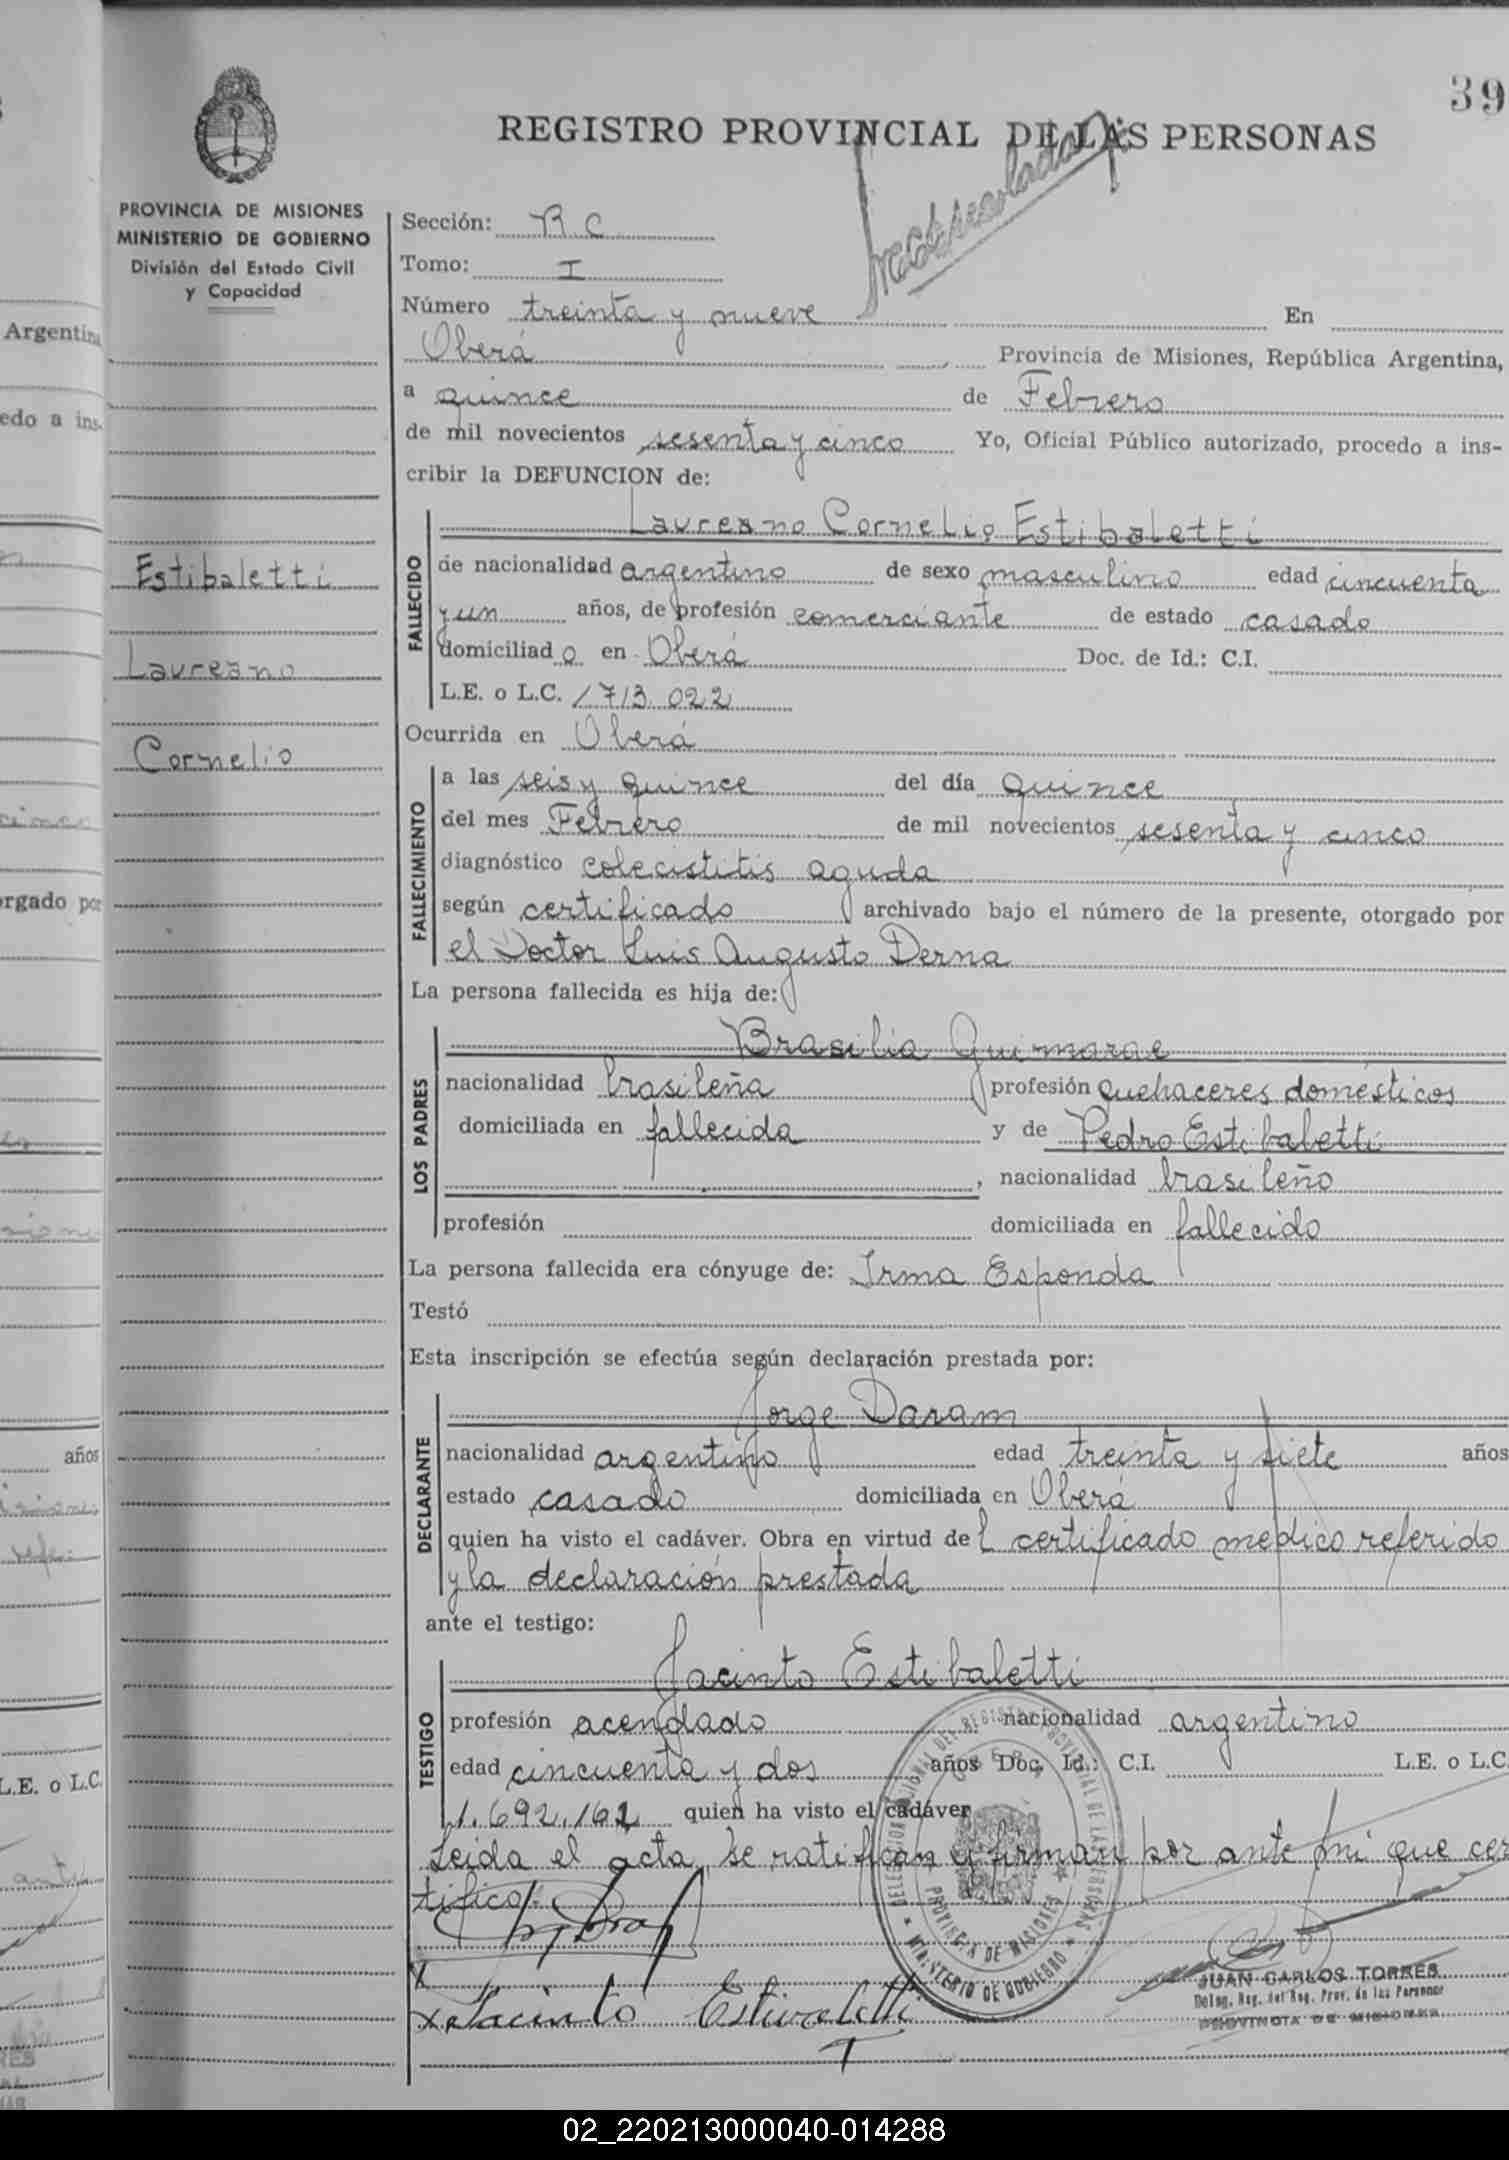 39
REGISTRO PROVINCIAL DE LAS PERSONAS
PROVINCIA DE MISIONES
MINISTERIO DE GOBIERNO
División del Estado Civil
y Capacidad
Estibaletti
Laureano
Cornelio
Sección: R C
Tomo: I
Número treinta y nueve En
Oberá Provincia de Misiones, República Argentina,
a quince de Febrero
de mil novecientos sesenta y cinco Yo, Oficial Público autorizado, procedo a ins-
cribir la DEFUNCION de:
FALLECIDO
Laureano Cornelio Estibaletti
de nacionalidad argentino de sexo masculino edad cincuenta
y un años, de profesión comerciante de estado casado
domiciliado en Oberá Doc. de Id.: C.I.
L.E. o L.C. 1713.022
Ocurrida en Oberá
FALLECIMIENTO
a las seis y quince del día quince
del mes Febrero de mil novecientos sesenta y cinco
diagnóstico colecistitis aguda
según certificado archivado bajo el número de la presente, otorgado por
el Doctor Luis Augusto Derna
La persona fallecida es hija de:
LOS PADRES
Brasilia Guimarae
nacionalidad brasileña profesión quehaceres domésticos
domiciliada en fallecida y de Pedro Estibaletti
, nacionalidad brasileño
profesión domiciliada en fallecido
La persona fallecida era cónyuge de: Irma Esponda
Testó
Esta inscripción se efectúa según declaración prestada por:
DECLARANTE
Jorge Daram
nacionalidad argentino edad treinta y siete años
estado casado domiciliada en Oberá
quien ha visto el cadáver. Obra en virtud del certificado medico referido
y la declaración prestada
ante el testigo:
TESTIGO
Jacinto Estibaletti
profesión acendado nacionalidad argentino
edad cincuenta y dos años Doc. Id.: C.I. L.E. o L.C.
1.692.162 quien ha visto el cadáver
Leida el acta, se ratifican y firman por ante mi que cer
tifico.
PROVINCIA DE MISIONES
MINISTERIO DE GOBIERNO
Jacinto Estivaletti
JUAN CARLOS TORRES
Deleg. Reg. del Reg. Prov. de las Personas
PROVINCIA DE MISIONES
Argentina
edo a ins-
orgado por
años
L.E. o L.C.
02_220213000040-014288